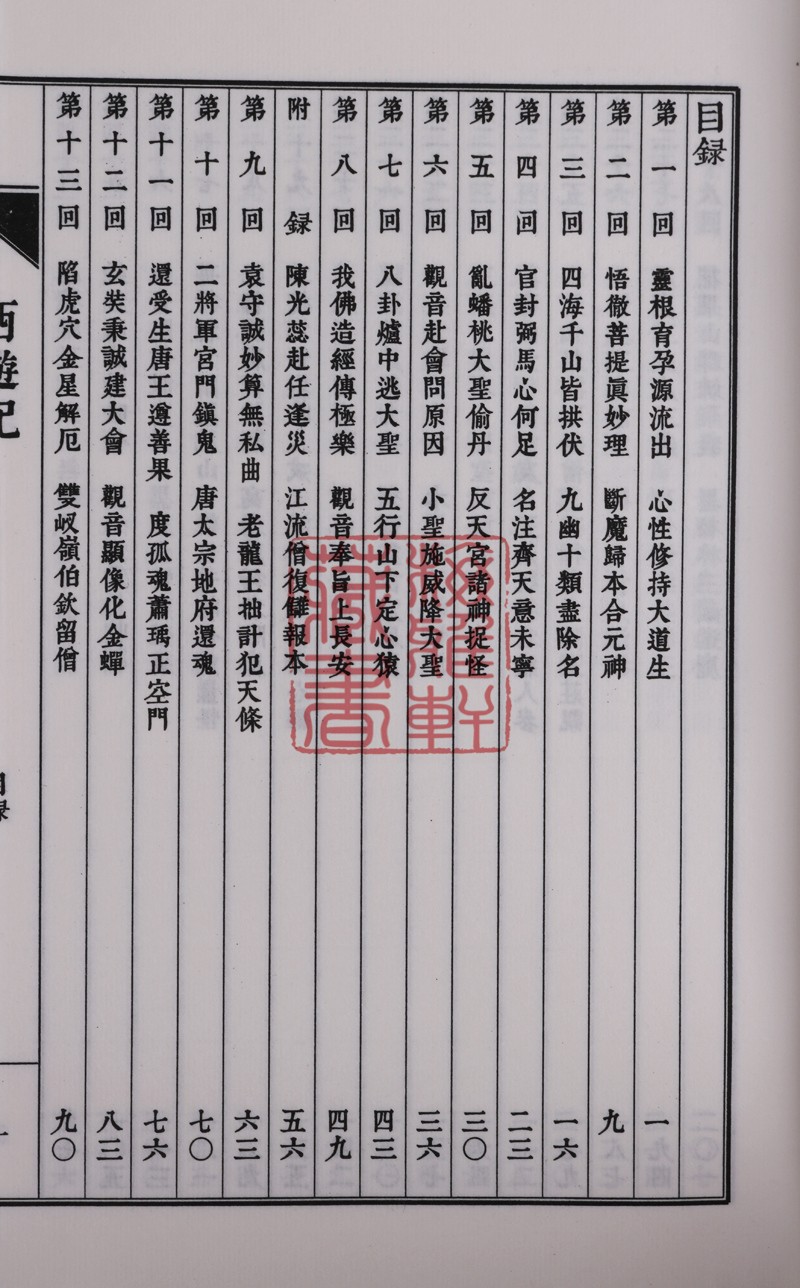 目録
第一回 靈根育孕源流出 心性修持大道生 一
第二回 悟徹菩提眞妙理 斷魔歸本合元神 九
第三回 四海千山皆拱伏 九幽十類盡除名 一六
第四回 官封弼馬心何足 名注齊天意未寧 二三
第五回 亂蟠桃大聖偷丹 反天宮諸神捉怪 三〇
第六回 觀音赴會問原因 小聖施威降大聖 三六
第七回 八卦爐中逃大聖 五行山下定心猿 四三
第八回 我佛造經傳極樂 觀音奉旨上長安 四九
附録 陳光蕊赴任逢災 江流僧復讎報本 五六
第九回 袁守誠妙算無私曲 老龍王拙計犯天條 六三
第十回 二將軍宮門鎮鬼 唐太宗地府還魂 七〇
第十一回 還受生唐王遵善果 度孤魂蕭瑀正空門 七六
第十二回 玄奘秉誠建大會 觀音顯像化金蟬 八三
第十三回 陷虎穴金星解厄 雙岔嶺伯欽留僧 九〇
西遊記
目録